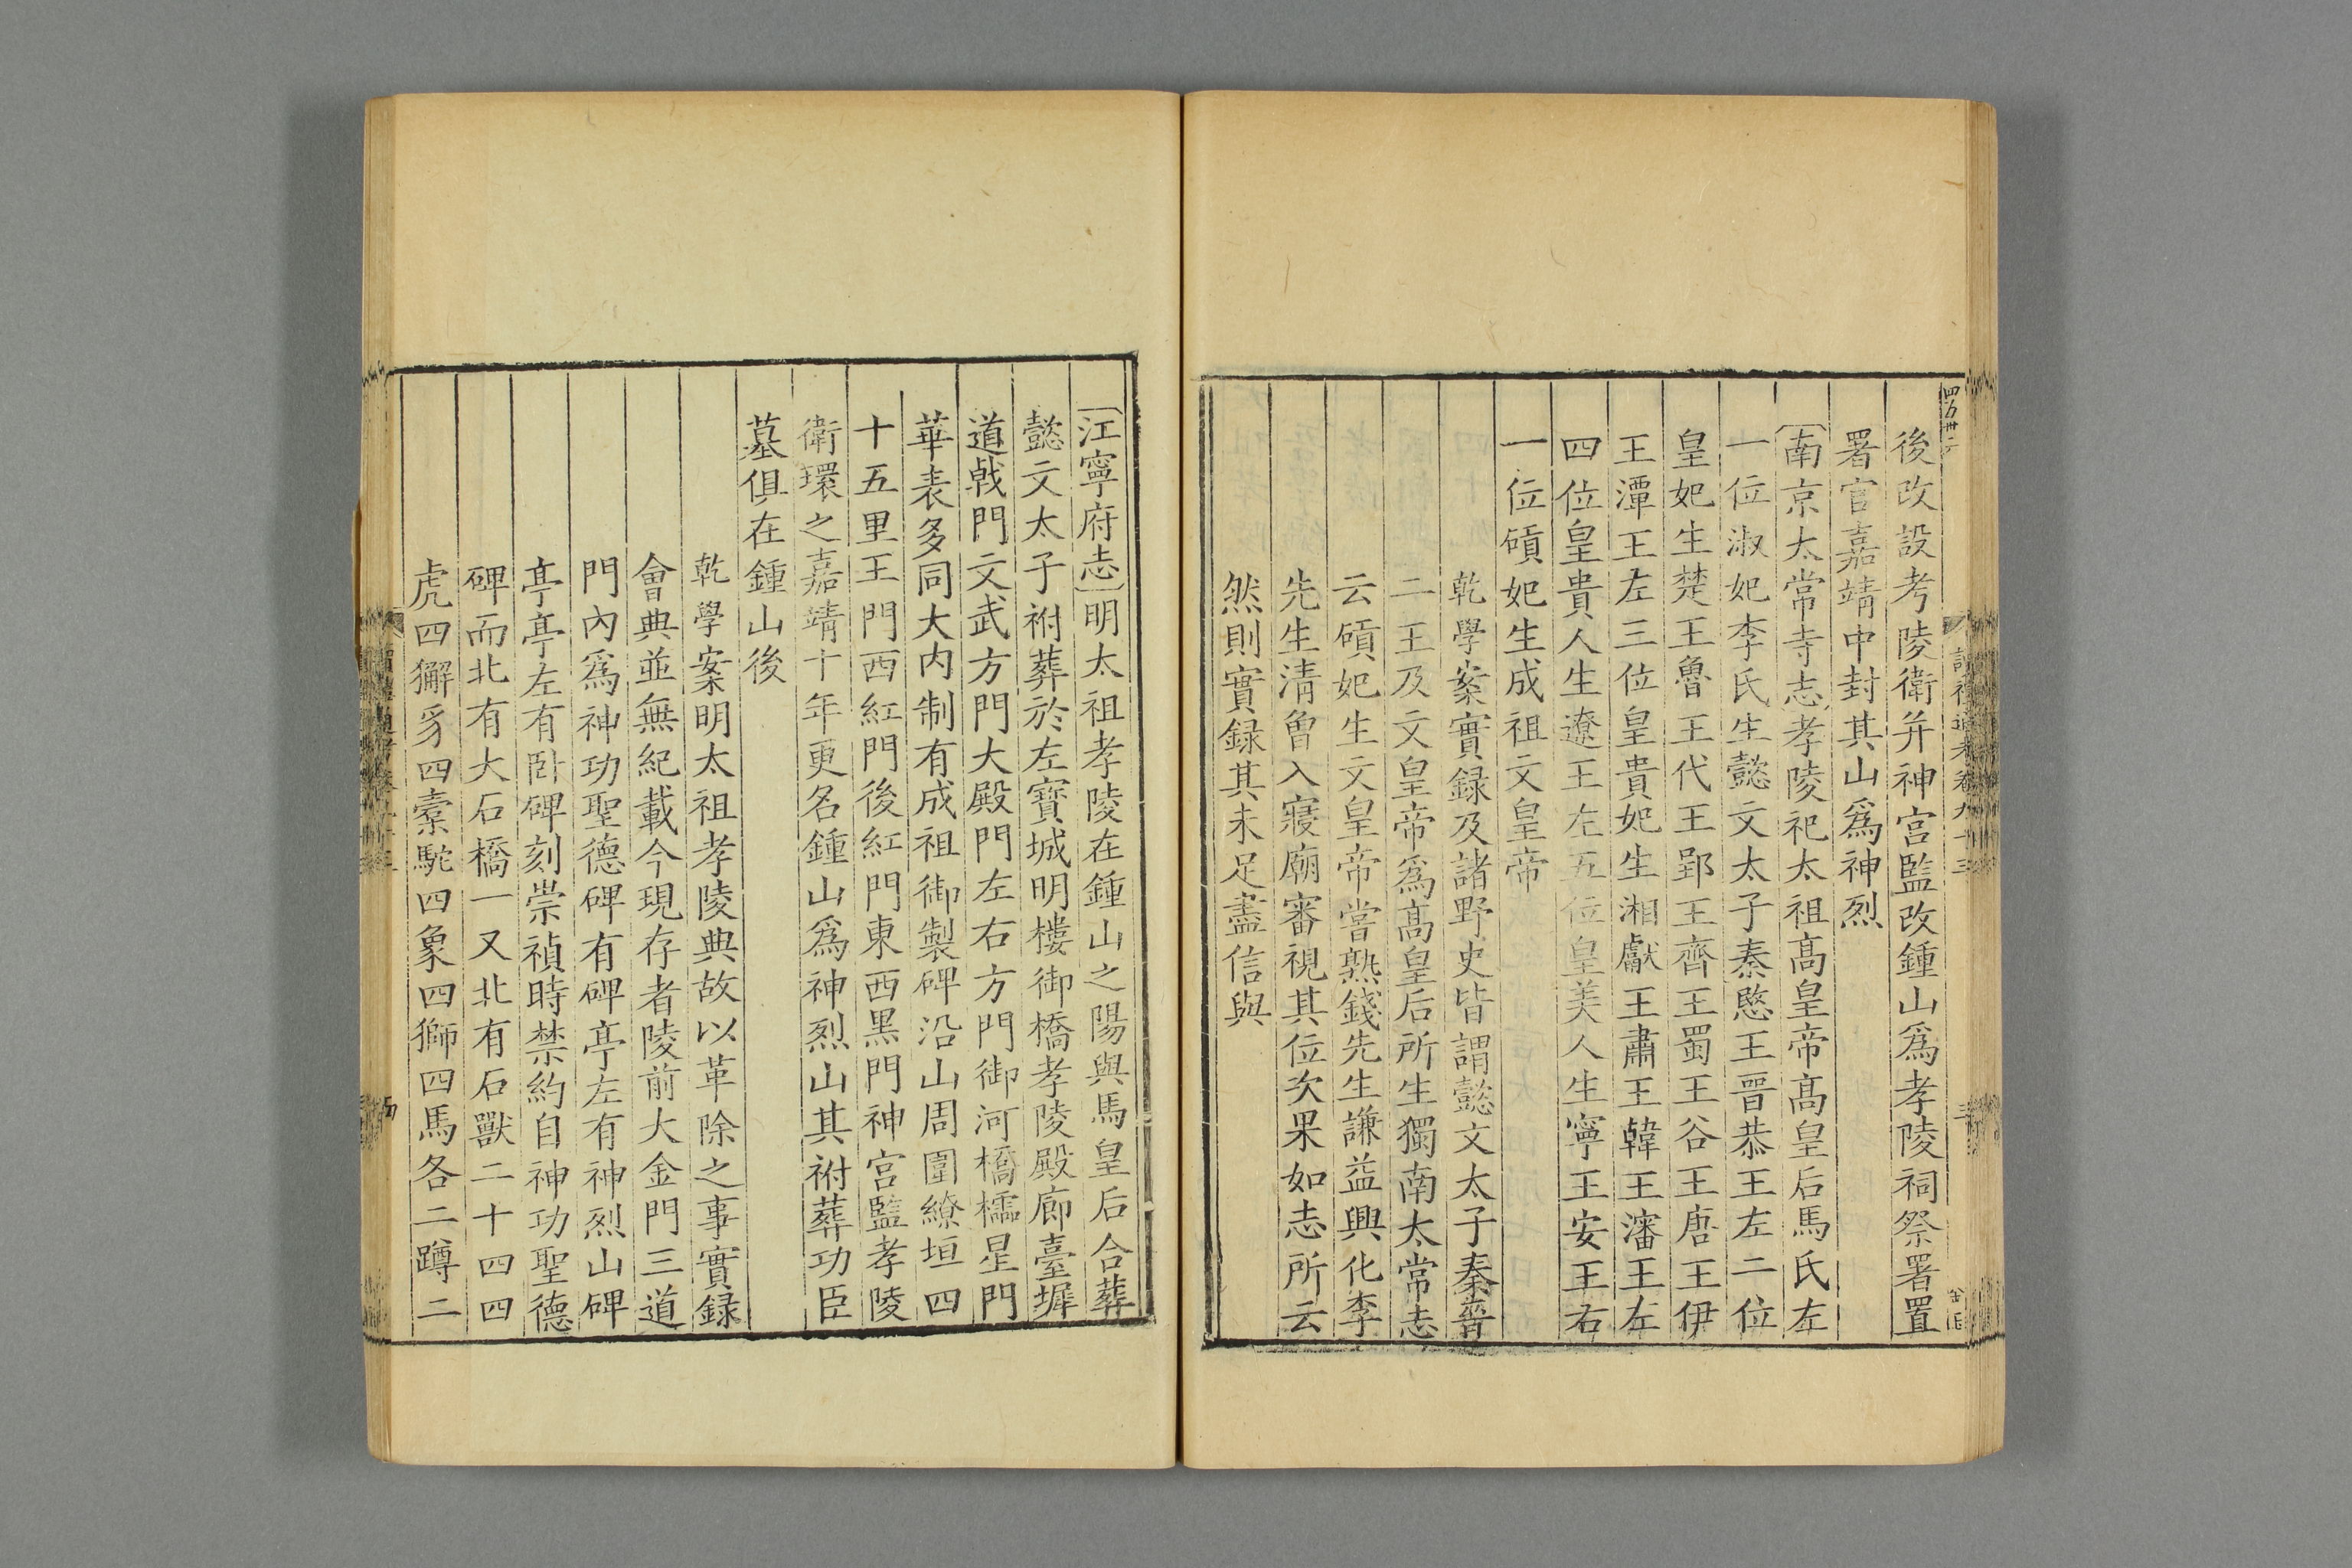 後改設孝陵衛并神宮監改鍾山爲孝陵祠祭署置
署官嘉靖中封其山爲神烈
南京太常寺志孝陵祀太祖髙皇帝髙皇后馬氏左
一位淑妃李氏生懿文太子秦愍王晉恭王左二位
皇妃生楚王魯王代王郢王齊王蜀王谷王唐王伊
王潭王左三位皇貴妃生湘獻王肅王韓王瀋王左
四位皇貴人生遼王左五位皇美人生寧王安王右
一位碩妃生成祖文皇帝
乾學案實録及諸野史皆謂懿文太子秦晉
二王及文皇帝爲髙皇后所生獨南太常志
云碩妃生文皇帝嘗熟錢先生謙益興化李
先生清曾入寢廟審視其位次果如志所云
然則實録其未足盡信與
讀禮通考卷九十三
江寧府志明太祖孝陵在鍾山之陽與馬皇后合葬
懿文太子祔葬於左寶城明樓御橋孝陵殿廊臺墀
道戟門文武方門大殿門左右方門御河橋櫺星門
華表多同大内制有成祖御製碑沿山周圍繚垣四
十五里王門西紅門後紅門東西黒門神宮監孝陵
衛環之嘉靖十年更名鍾山爲神烈山其祔葬功臣
墓俱在鍾山後
乾學案明太祖孝陵典故以革除之事實録
會典並無紀載今現存者陵前大金門三道
門内爲神功聖德碑有碑亭左有神烈山碑
亭亭左有卧碑刻崇禎時禁約自神功聖德
碑而北有大石橋一又北有石獸二十四四
虎四獬豸四槖駝四象四獅四馬各二蹲二